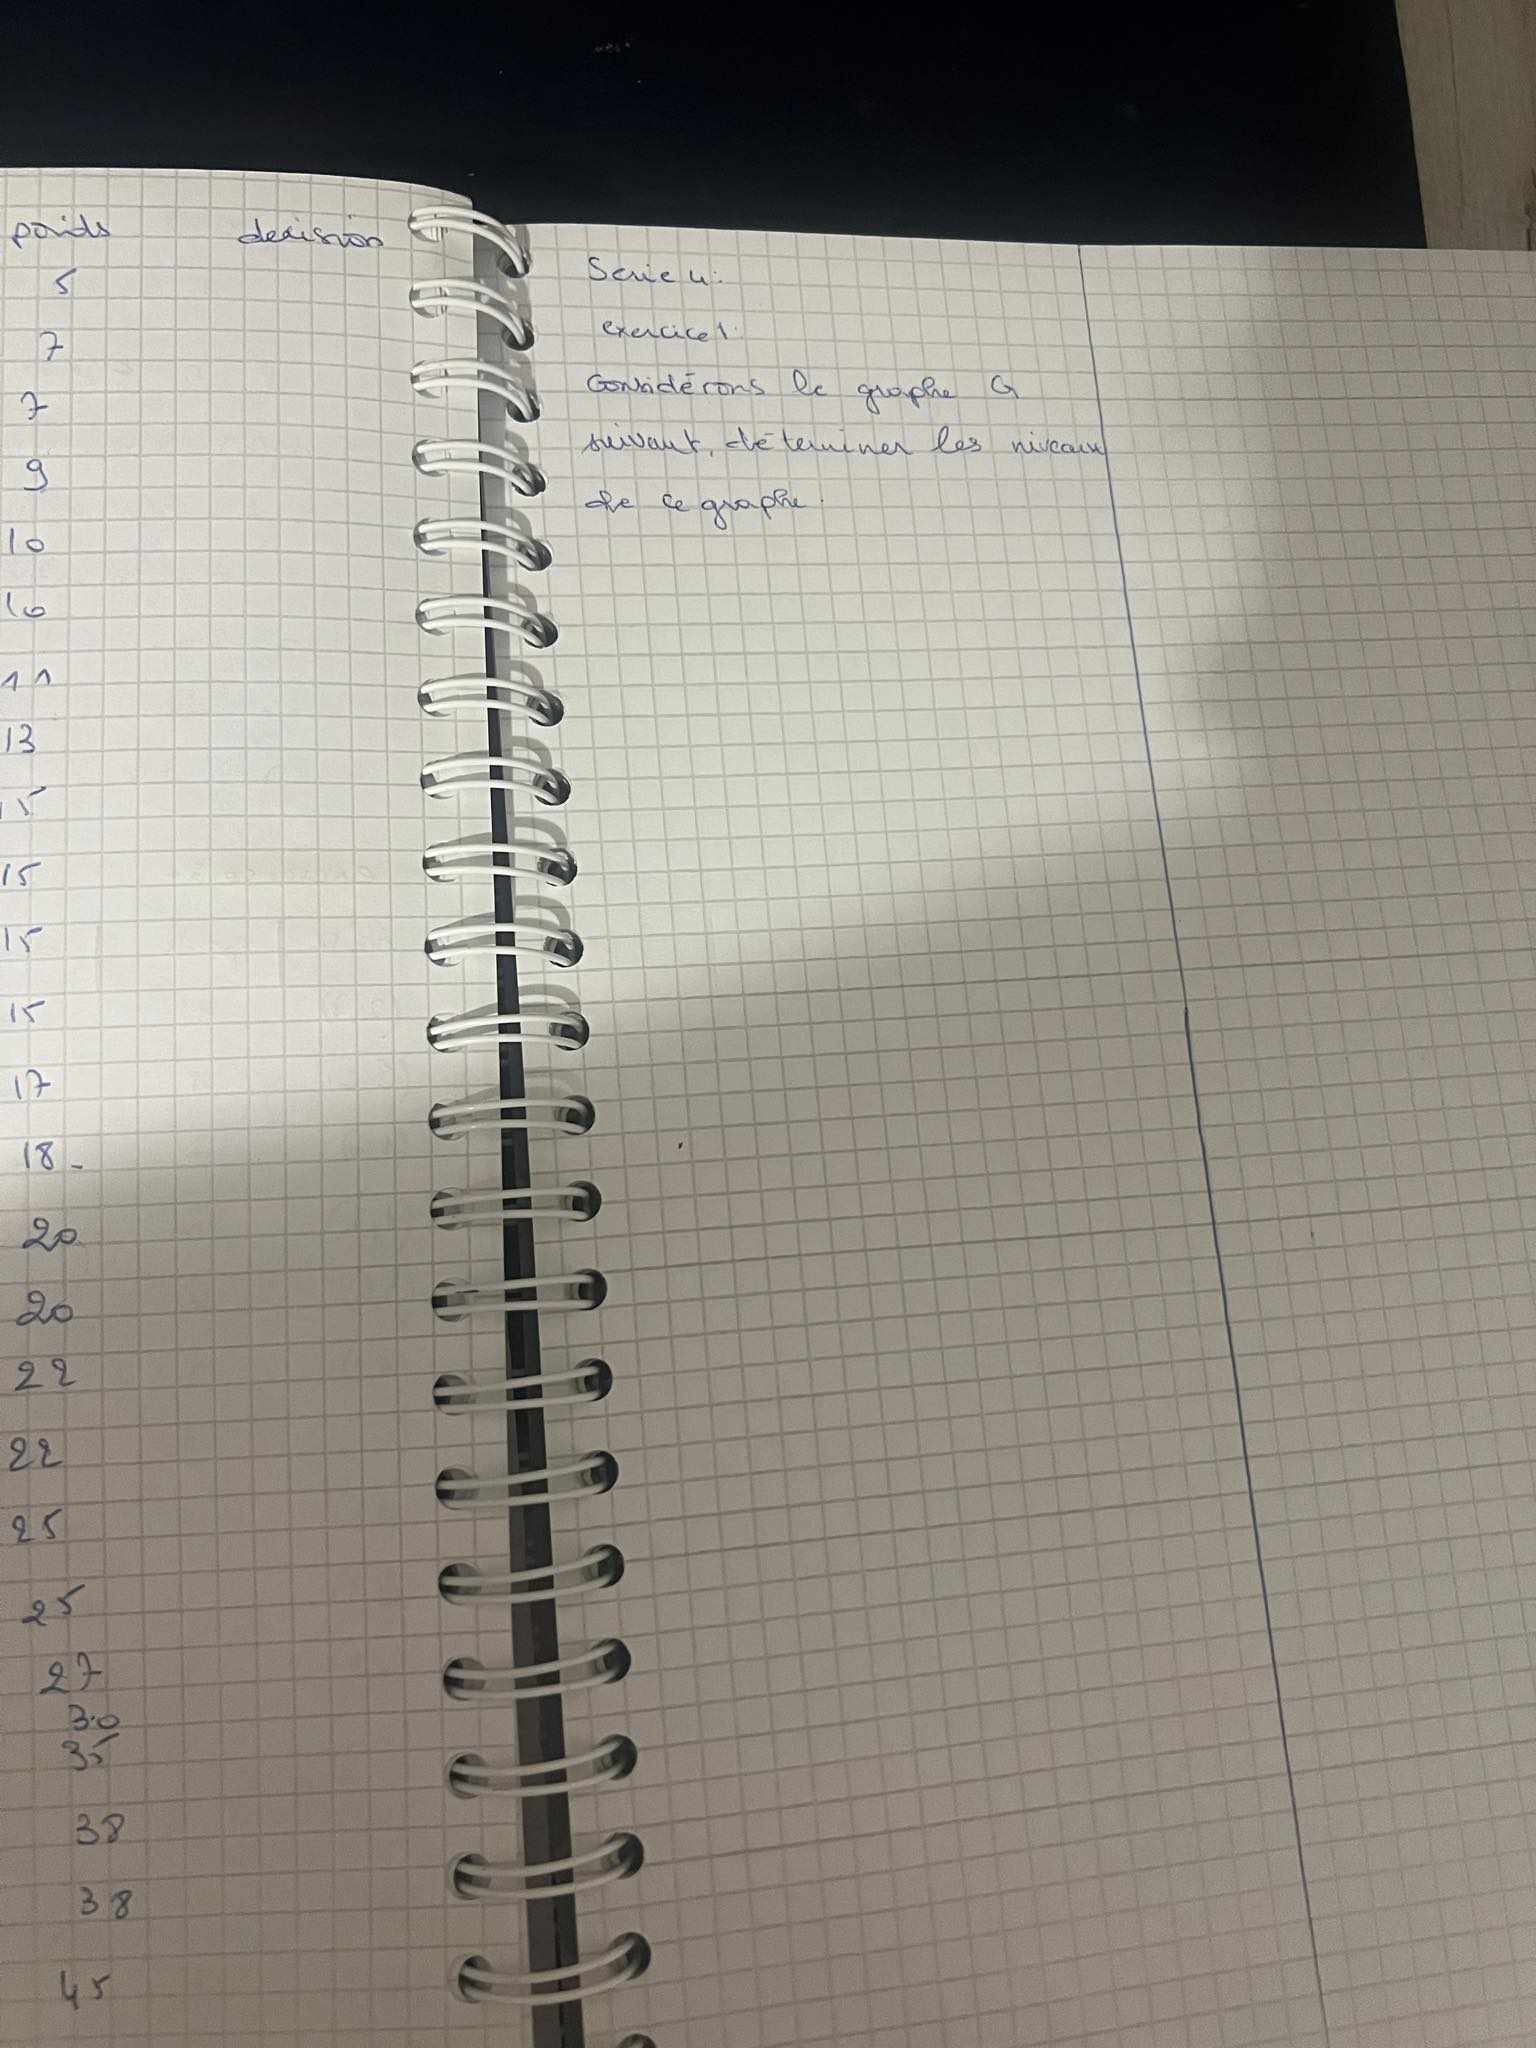 poids decision
5
7
7
9
10
10
11
13
15
15
15
15
17
18-
20
20
22
22
25
25
27
30
35
38
38
45
Serie 4:
exercice 1:
Considérons le graphe G
suivant, déterminer les niveaux
de ce graphe.